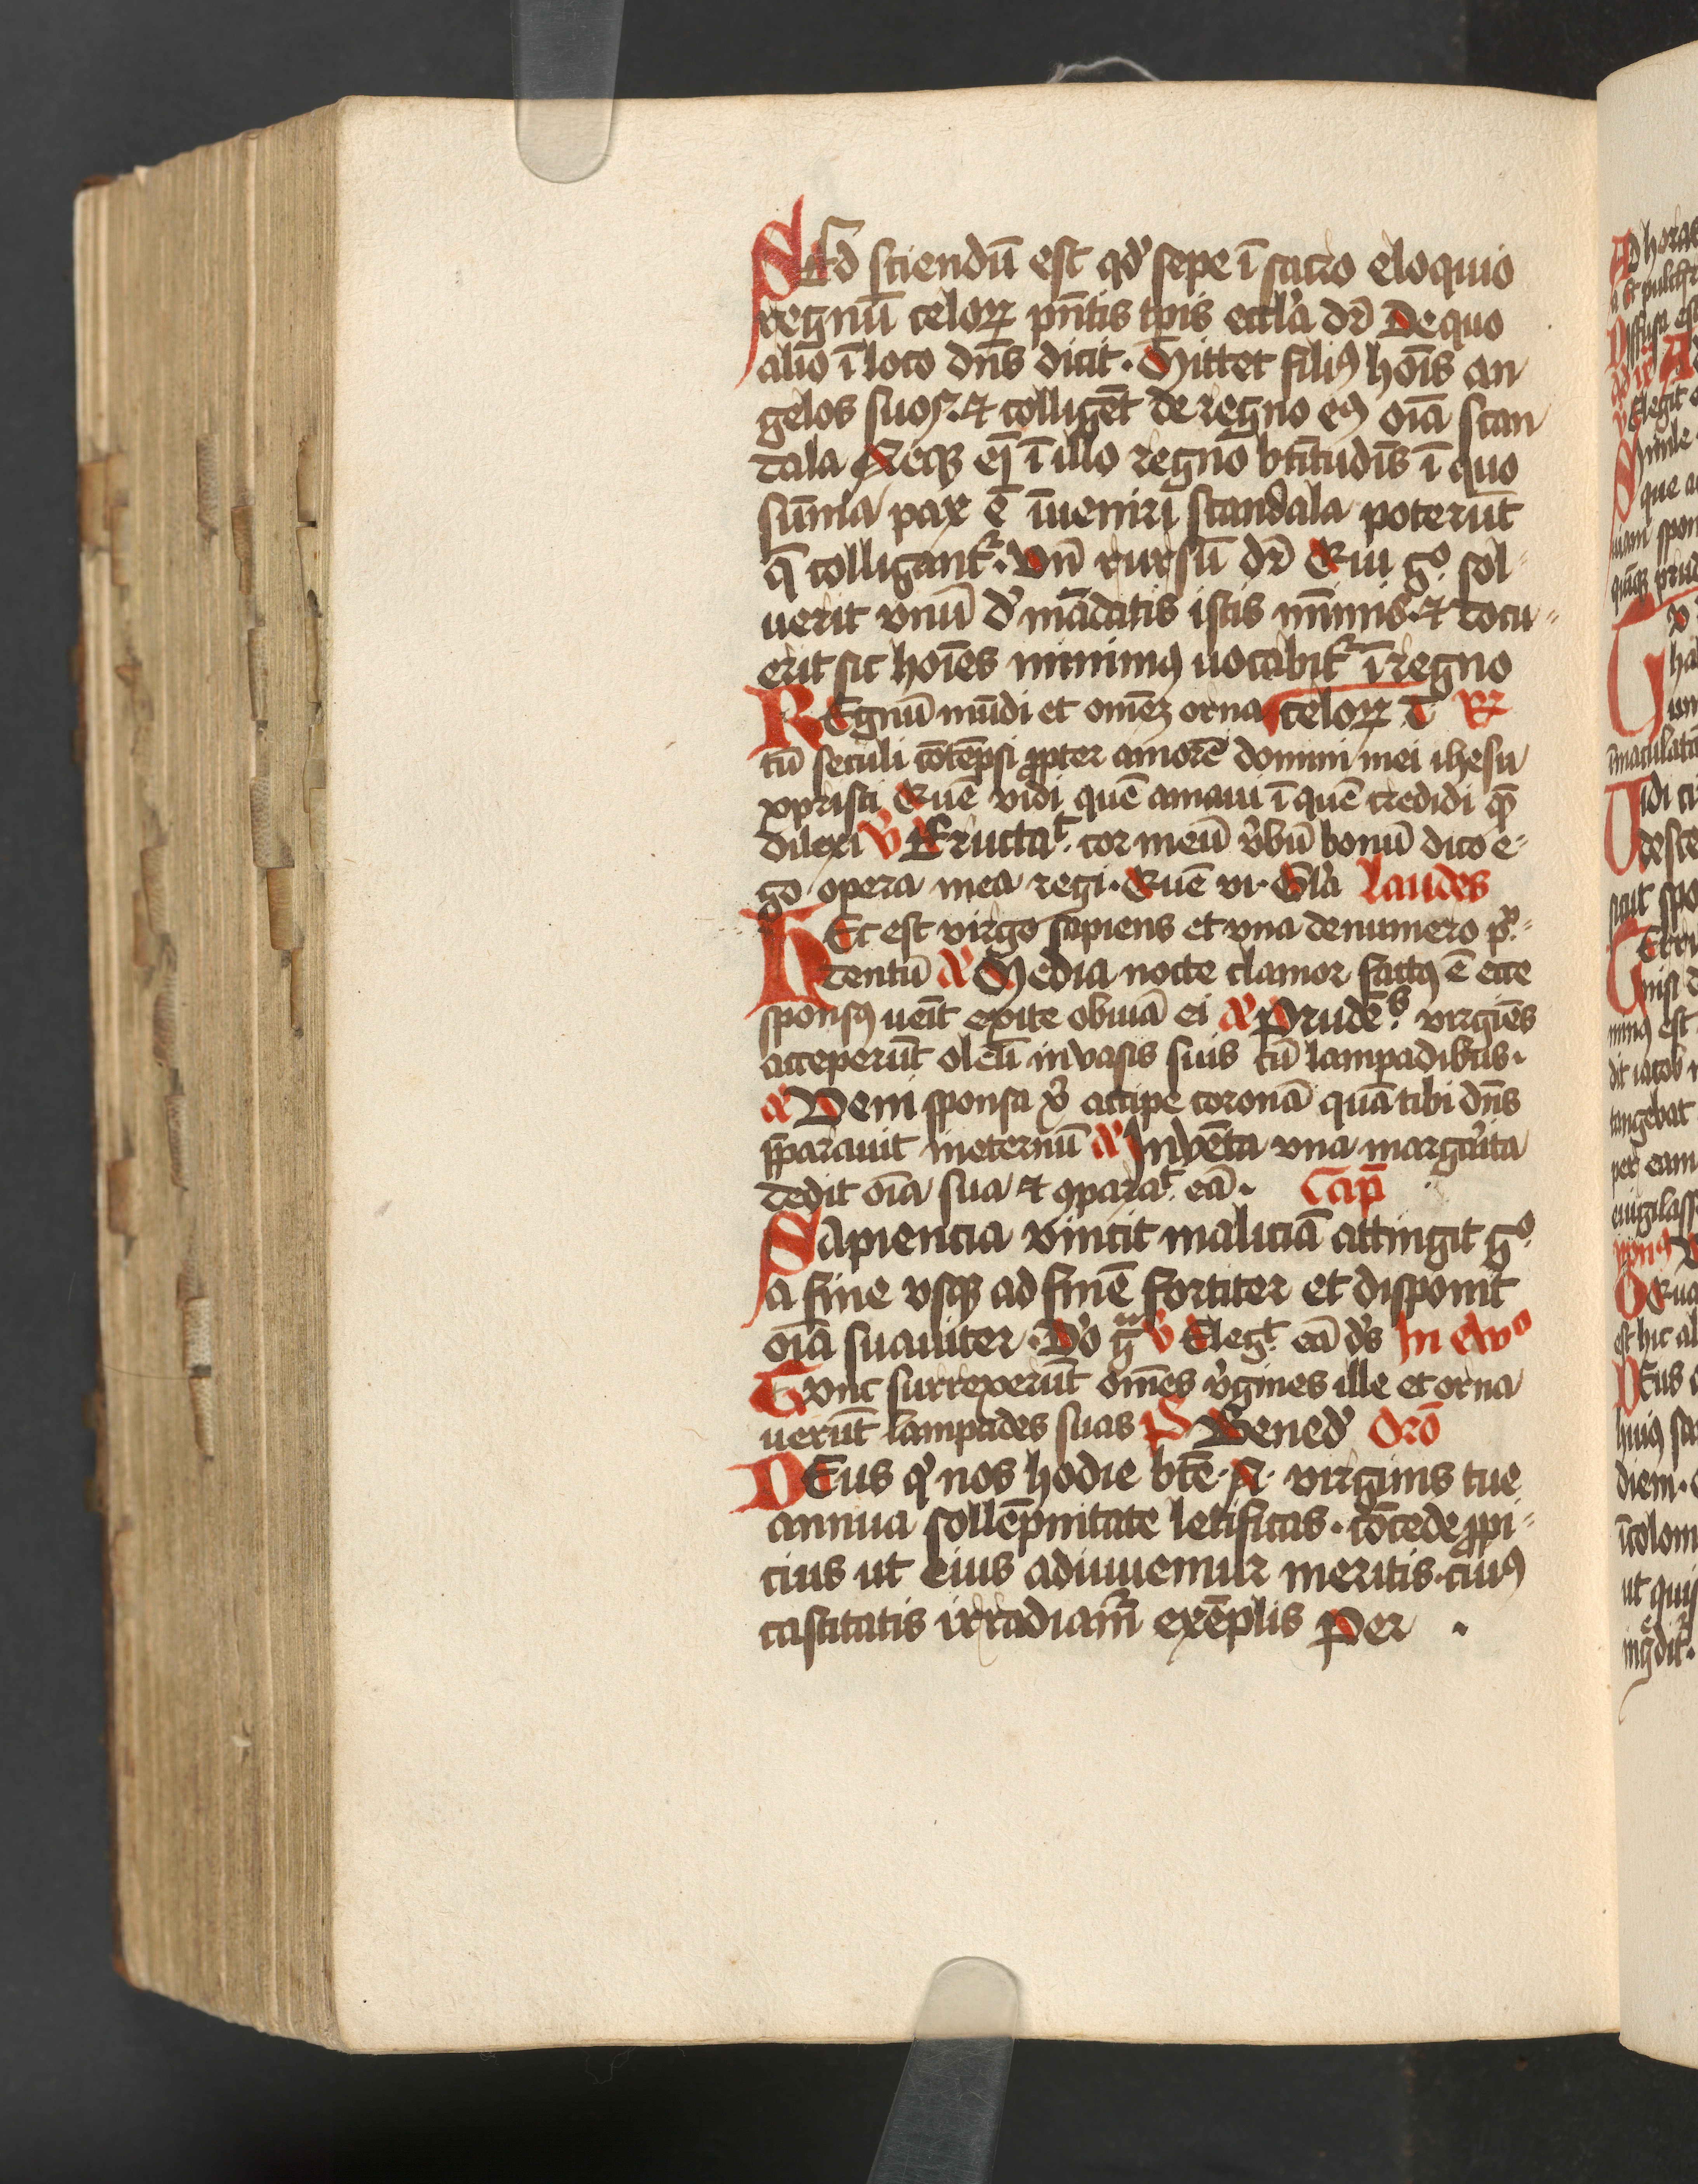 SEd sciendū est qđ sepe ī sacro eloquio
regnū celoꝝ pn̄tis tp̄is eccl'a dr̄ De quo
alio ī loco dn̄s dicit · Mittet filiꝰ hoīs an
gelos suos · ⁊ colligēt de regno eiꝰ oīa scan
dala Neqꝫ eī ī illo regno btītudīs ī quo
sūma pax ē īueniri scandala poterūt
q̄ colligant᷑ · Vn̄ rursū dr̄ Qui gͦ sol
uerit vnū d' mādatis istis mīmis · ⁊ docu
erit sic hoīes minimꝰ uocabit᷑ ī regno
celoꝝ T ꝶ
REgnū mūdi et omēꝫ orna
tū seculi cōtēpsi ꝓpter amorē domini mei ihesu
xpristi Quē vidi quē amaui ī quē credidi quē
dilexi ꝟ Eructaᵗ · cor meū ṽbū bonū dico e
go opera mea regi · Quē vi · Gl'a Laudes
HEc est virgo sapiens et vna de numero pͬ
dentū a' Media nocte clamor factꝰ ē ecce
sponsꝰ ueīt exite obuiā ei a' Prudēˢ virgiēs
acceperūt oleū in vasis suis cū lampadibus ·
a' Veni sponsa x' accipe coronā quā tibi dn̄s
p̄parauit in eternū a' Inuēta vna margarita
dedit oīa sua ⁊ ꝯparaᵗ eā · Cap̄
SApiencia vincit maliciā attingit gͦ
a fine vsqꝫ ad finē fortiter et disponit
oīa suauiter · Do gᵃ ꝟ Elegᵗ eā d's In ewᵒ
TVnc surrexerūt omēs v'gines ille et orna
uerūt lampades suas p̄s Bened' Orō
DEus q' nos hodie btē · N · virginis tue
annua sollēpnitate letificas · cōcede ꝓpi
cius ut eius adiuuemur meritis · cuiꝰ
castitatis irradiam᷑ exēplis Per ·